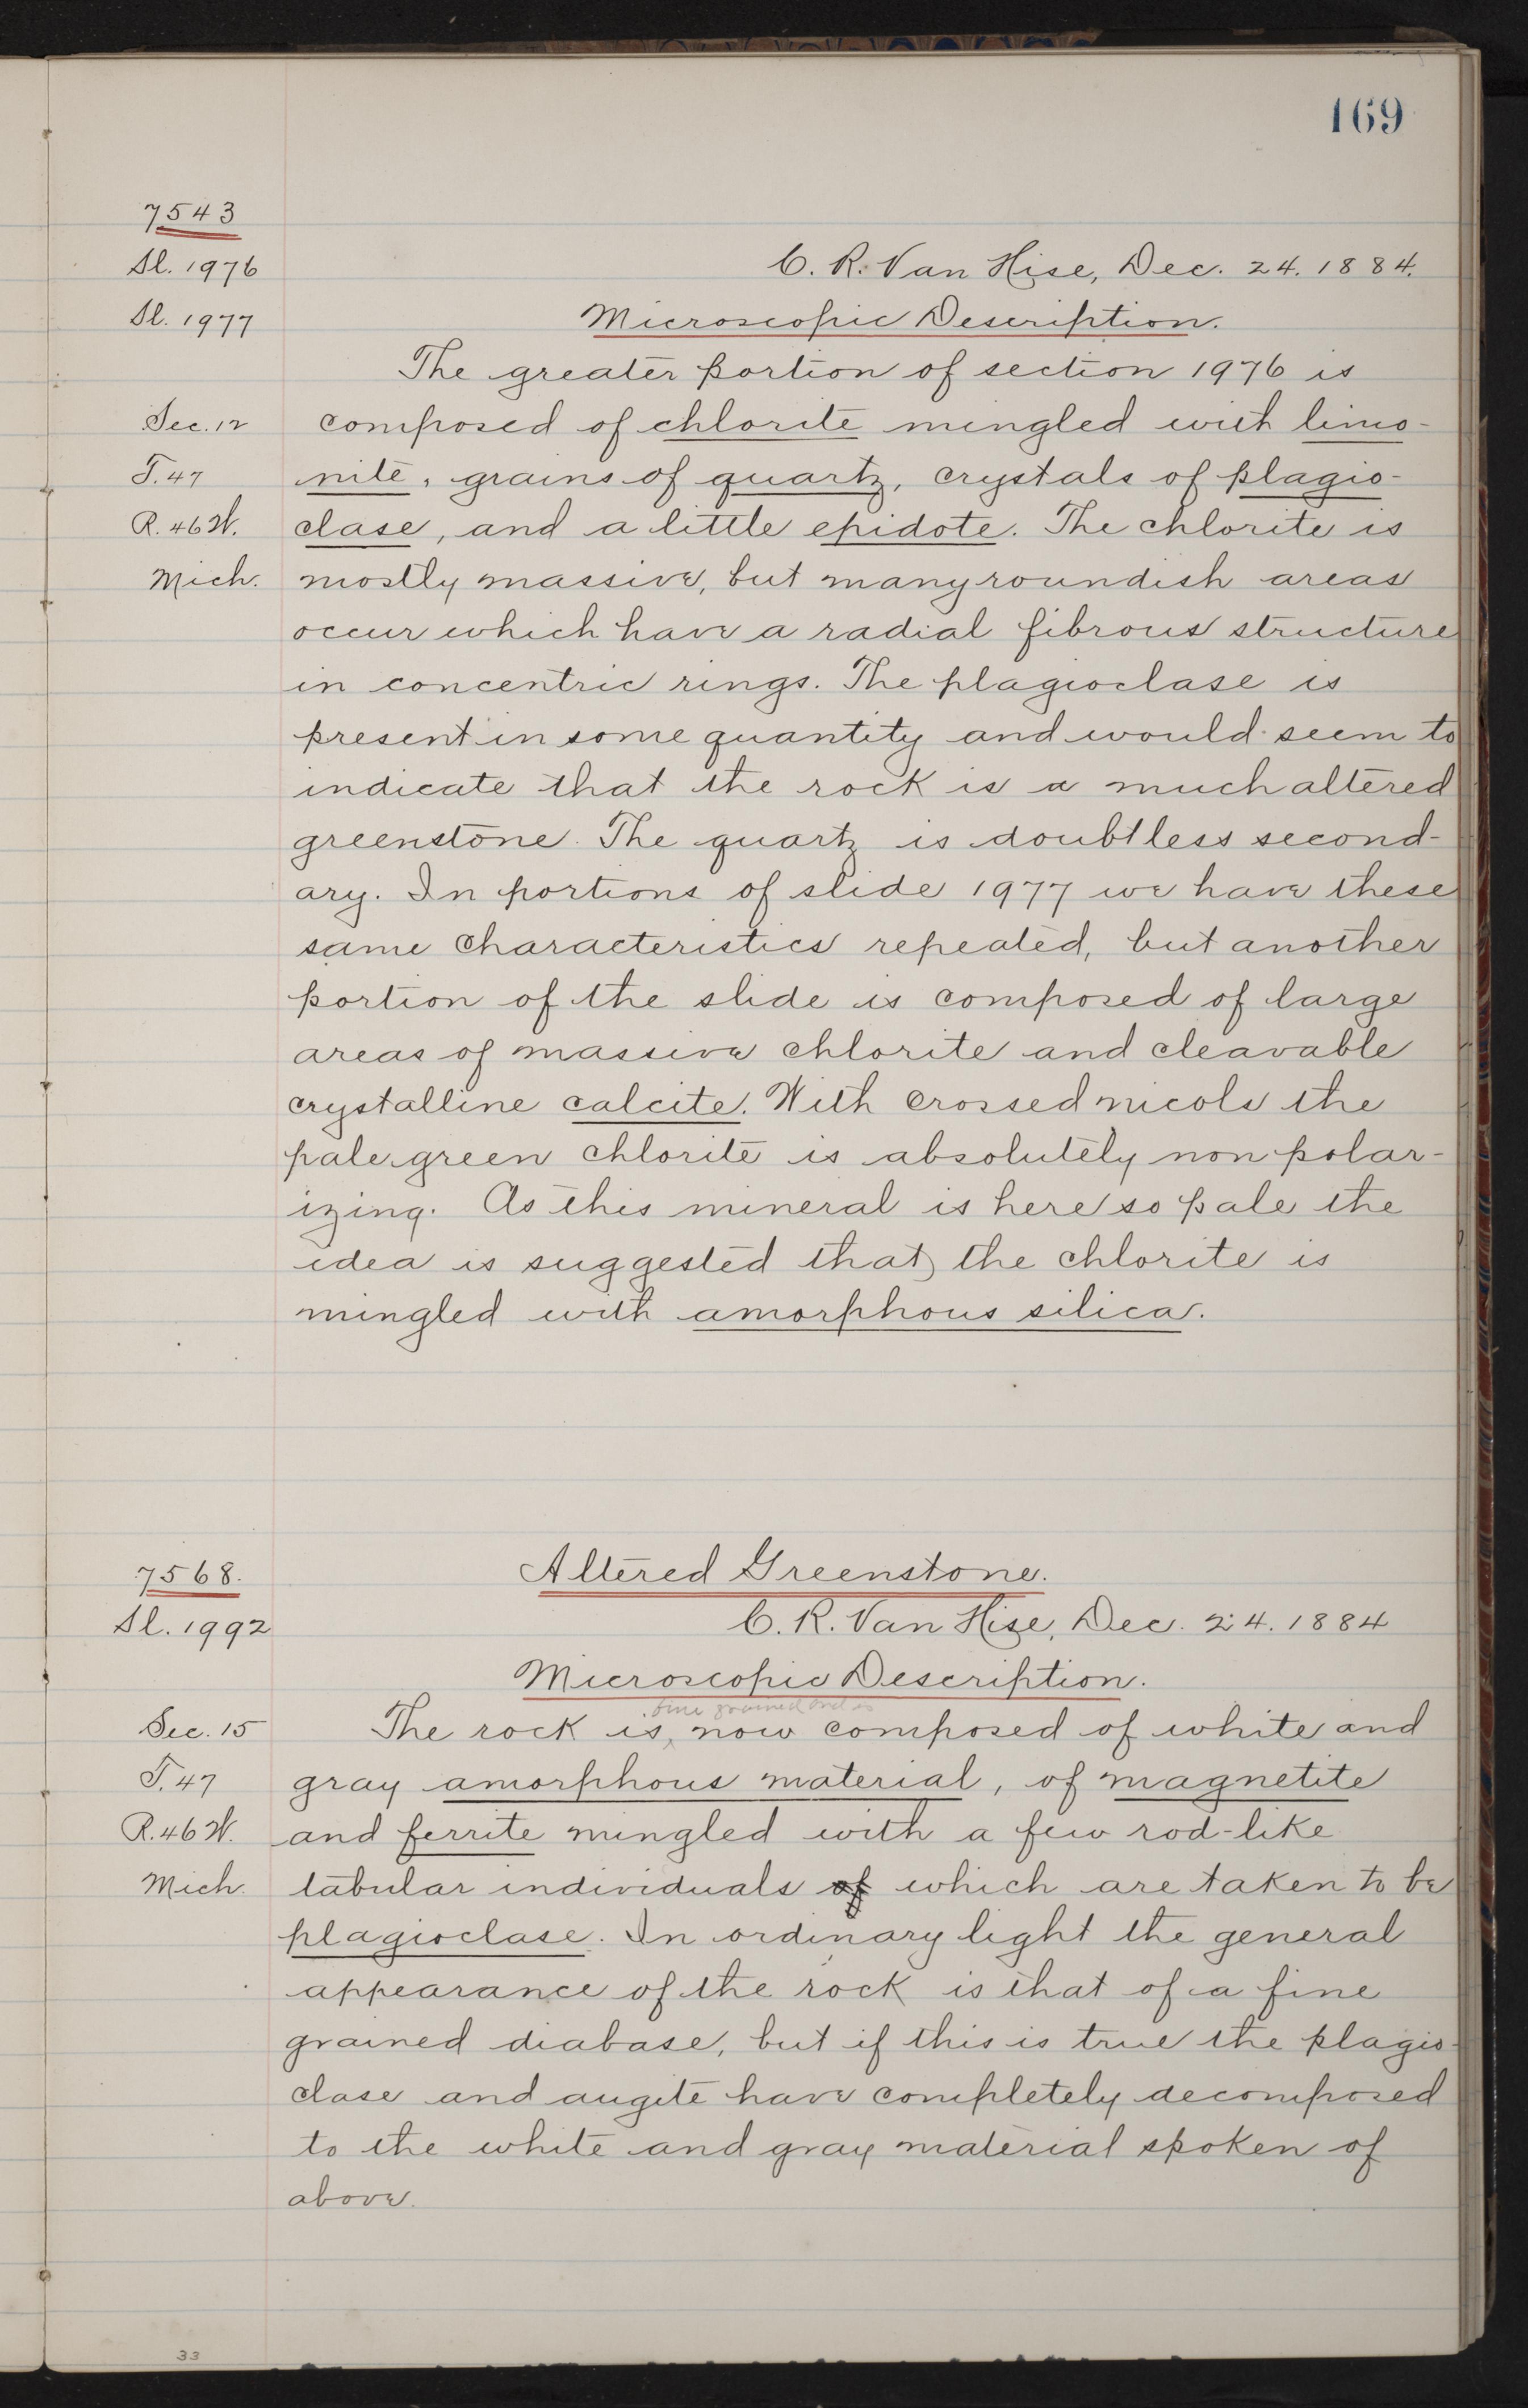 169
7543
Sl. 1976
C. R. Van Hise, Dec. 24. 1884.
Sl. 1977
Microscopic Description.
The greater portion of section 1976 is
Sec. 12
composed of chlorite mingled with limo-
T. 47
nite, grains of quartz, crystals of plagio-
R. 46 W.
clase, and a little epidote. The chlorite is
Mich.
mostly massive, but many roundish areas
occur which have a radial fibrous structure
in concentric rings. The plagioclase is
present in some quantity and would seem to
indicate that the rock is a much altered
greenstone. The quartz is doubtless second-
ary. In portions of slide 1977 we have these
same characteristics repeated, but another
portion of the slide is composed of large
areas of massive chlorite and cleavable
crystalline calcite. With crossed nicols the
pale green chlorite is absolutely non polar-
izing. As this mineral is here so pale the
idea is suggested that the chlorite is
mingled with amorphous silica.
7568.
Altered Greenstone.
Sl. 1992
C. R. Van Hise, Dec. 24. 1884
Microscopic Description.
fine grained and is
Sec. 15
The rock is now composed of white and
T. 47
gray amorphous material, of magnetite
R. 46 W.
and ferrite mingled with a few rod-like
Mich.
tabular individuals of which are taken to be
plagioclase. In ordinary light the general
appearance of the rock is that of a fine
grained diabase, but if this is true the plagio-
clase and augite have completely decomposed
to the white and gray material spoken of
above.
33